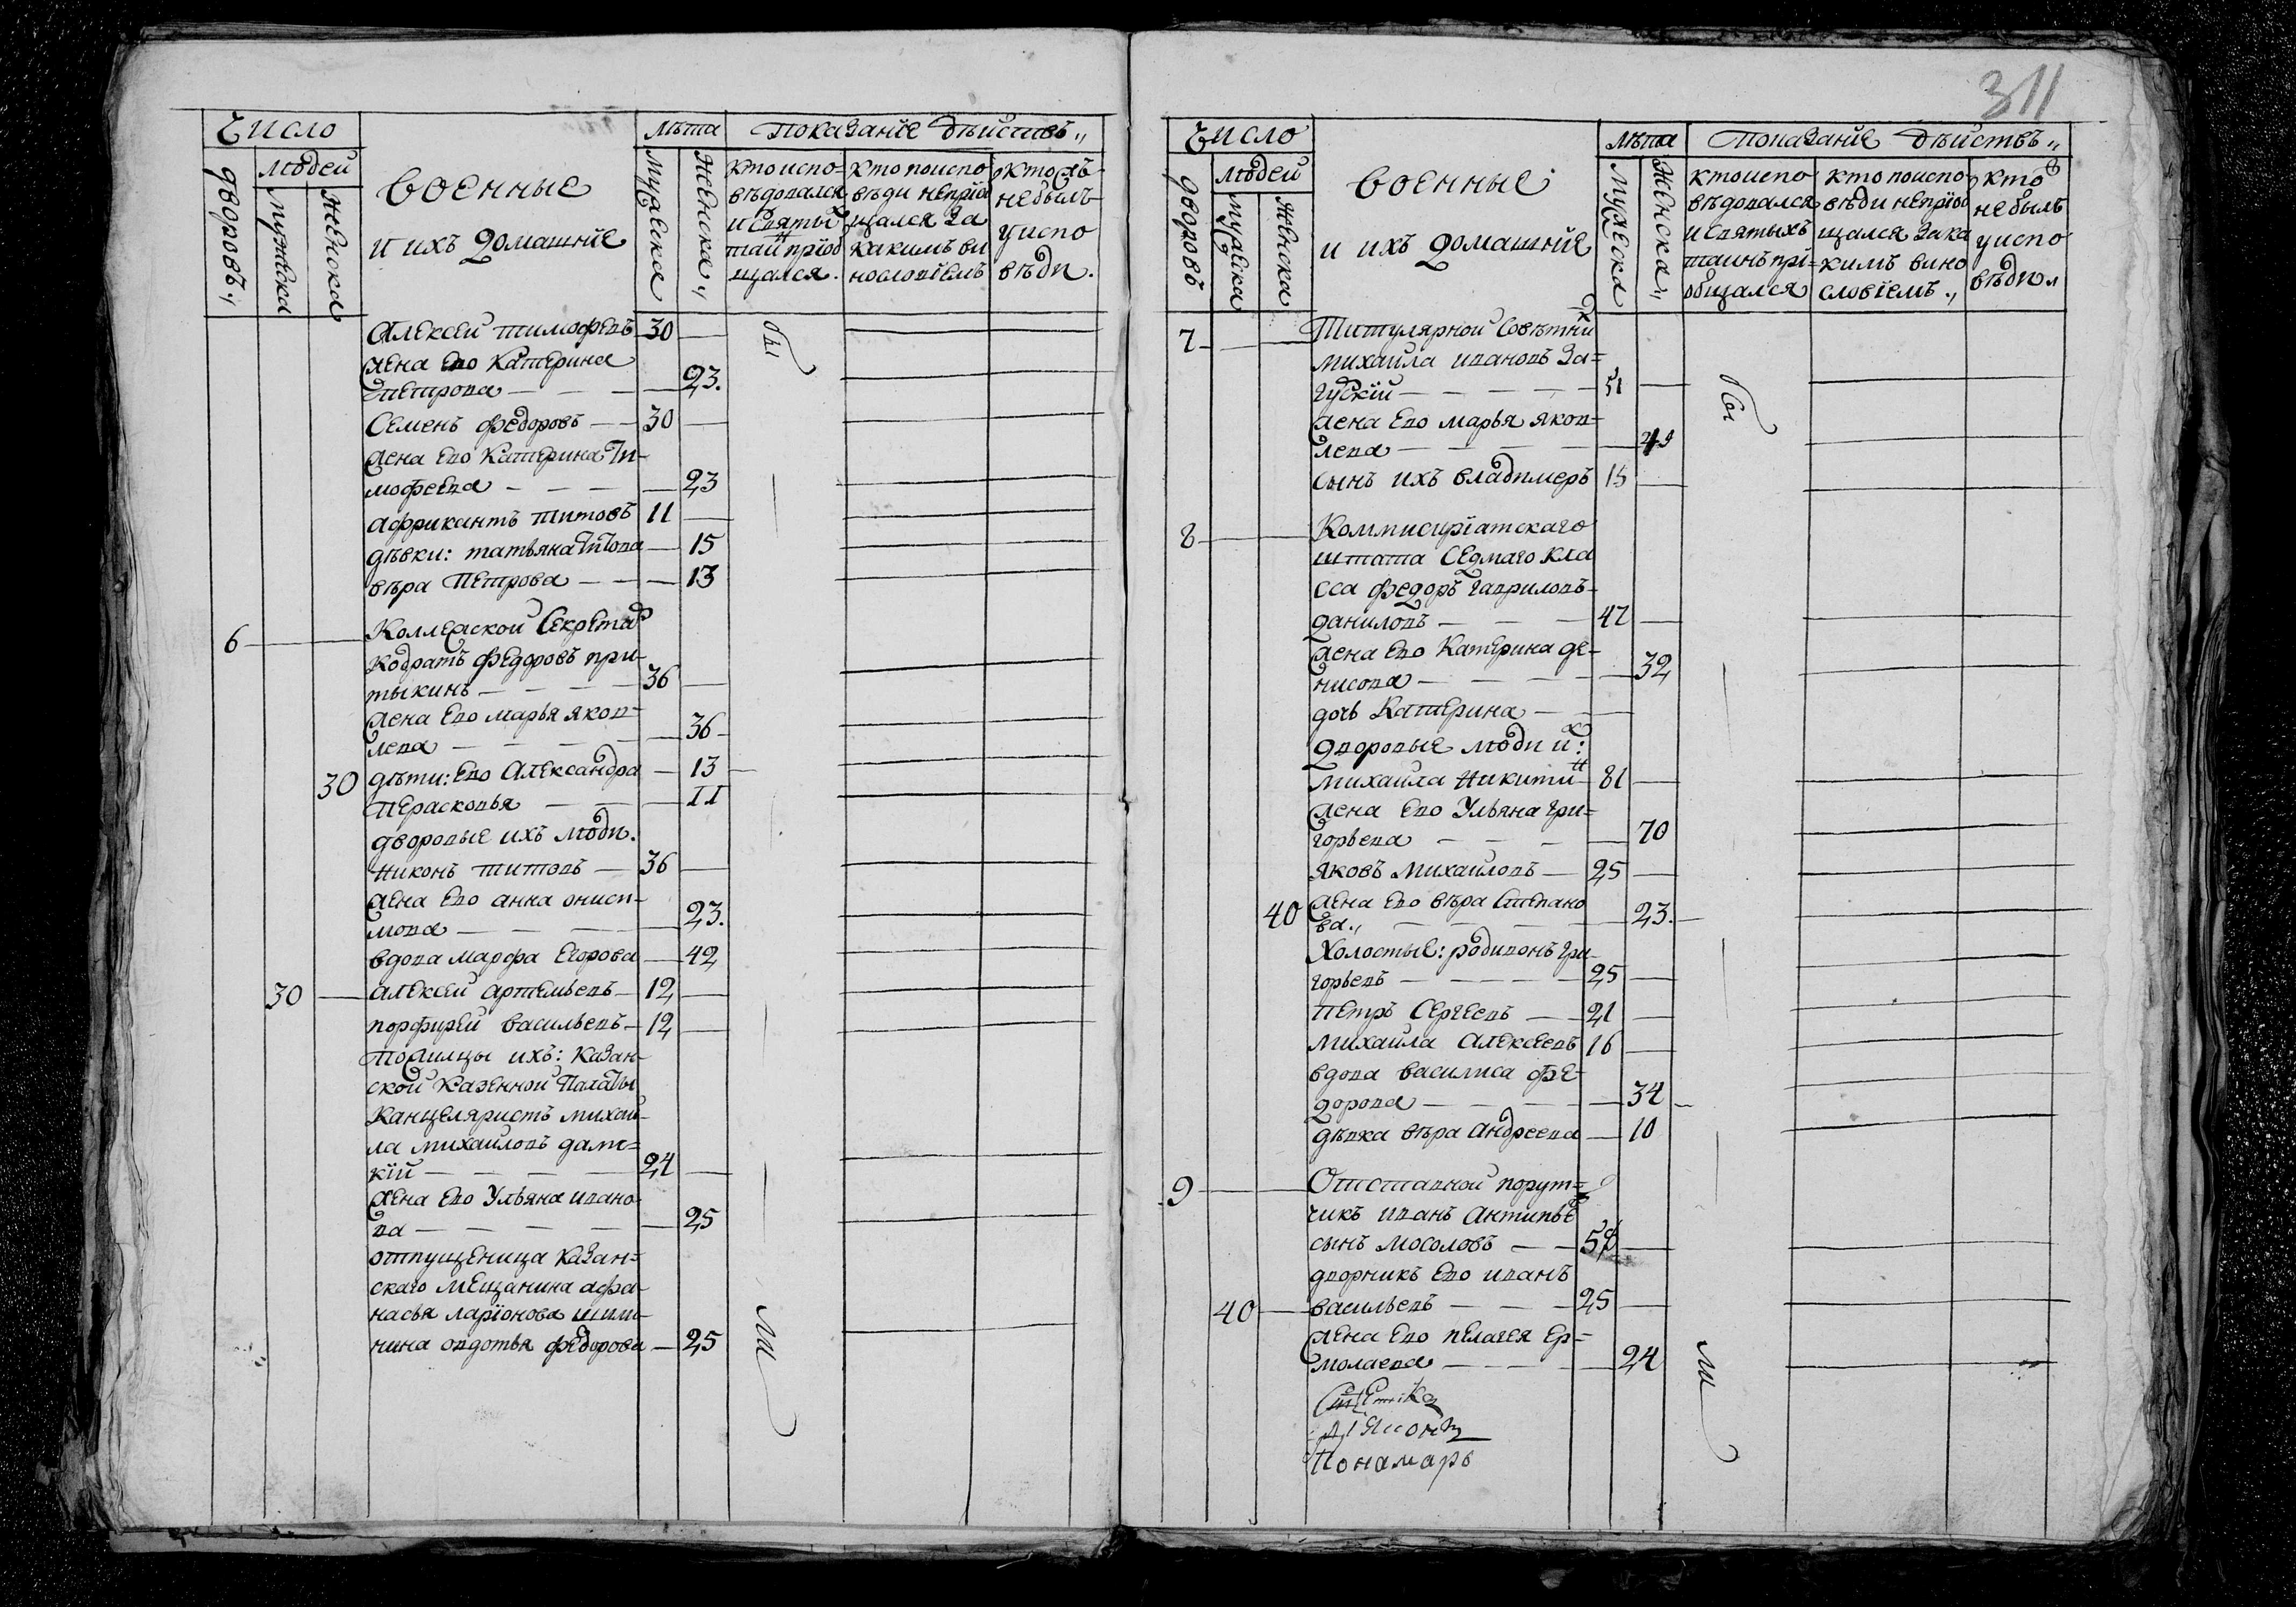 311
Число
лѣта
Показанїе дѣиствъ
людей
дворовъ
мужеска
женска
военные
и ихъ домашнїе
мужеска
женска
кто испо-
вѣдовался
и святы
таи прїоб
щался.
кто по испо
вѣди не прїоб
щался за
какимъ ви
нословїемъ
кто
не былъ
у испо
вѣди.
Алексеи тимофевъ 30
жена Ево Катерина
петрова 23.
Семенъ федоровъ 30
жена Ево Катерина Ти-
мофеева 23
африкантъ титовъ 11
дѣвки: татьяна титова 15
вѣра петрова 13
6 Коллежской Секретар
кодратъ федоровъ при-
тыкинъ 36
жена Ево марья яков-
лева 36
30 дѣти: Ево Александра 13
Перасковья 11
дворовые ихъ люди.
никонъ титовъ 36
жена Ево анна ониси-
мова 23.
вдова марфа Егорова 42
30 алексеи артемьевъ 12
порфиреи васильевъ 12
тожилцы ихъ: казан-
ской казенной Палаты
Канцеляристъ михаи-
ла михаиловъ дат-
кїй 24
жена Ево Ульяна ивано-
ва 25
отпущеница казан-
скаго мещанина афа-
насья ларїонова
овдотья федорова 25
бы
ли
Число
лѣта
Показанїе дѣиствъ
людей
дворовъ
мужеска
женска
военные
и ихъ домашнїе
мужеска
женска
кто испо
вѣдовался
и святыхъ
таинъ прї-
общался
кто по испо
вѣди не прїоб
щался за ка
кимъ вино
словїемъ
кто
не былъ
у испо
вѣди
7 Титулярной Совѣтник
михаила ивановъ За-
гускїй 51
жена Ево марья яков-
лева 49
сынъ ихъ владимеръ 15
8 Коммисарїатскаго
штата Седмаго кла
сса федоръ гавриловъ
даниловъ 47
жена Ево Катерина де-
нисова 32
дочь Катерина
дворовые люди их:
михаила никитин 81
жена Ево Ульяна гри-
горьева 70
яковъ михаиловъ 25
40 жена Ево вѣра степано
ва 23.
Холостые: родивонъ гри-
горьевъ 25
петръ Сергеевъ 21
михаила алексеевъ 16
вдова василиса фе-
дорова 34
дѣвка вѣра андреева 10
9 Отставной порут-
чикъ иванъ антипье
сынъ мосоловъ 58
дворникъ Ево иванъ
40 васильевъ 25
жена Ево пелагея Ер-
молаева 24
бы
ли
Понамарь